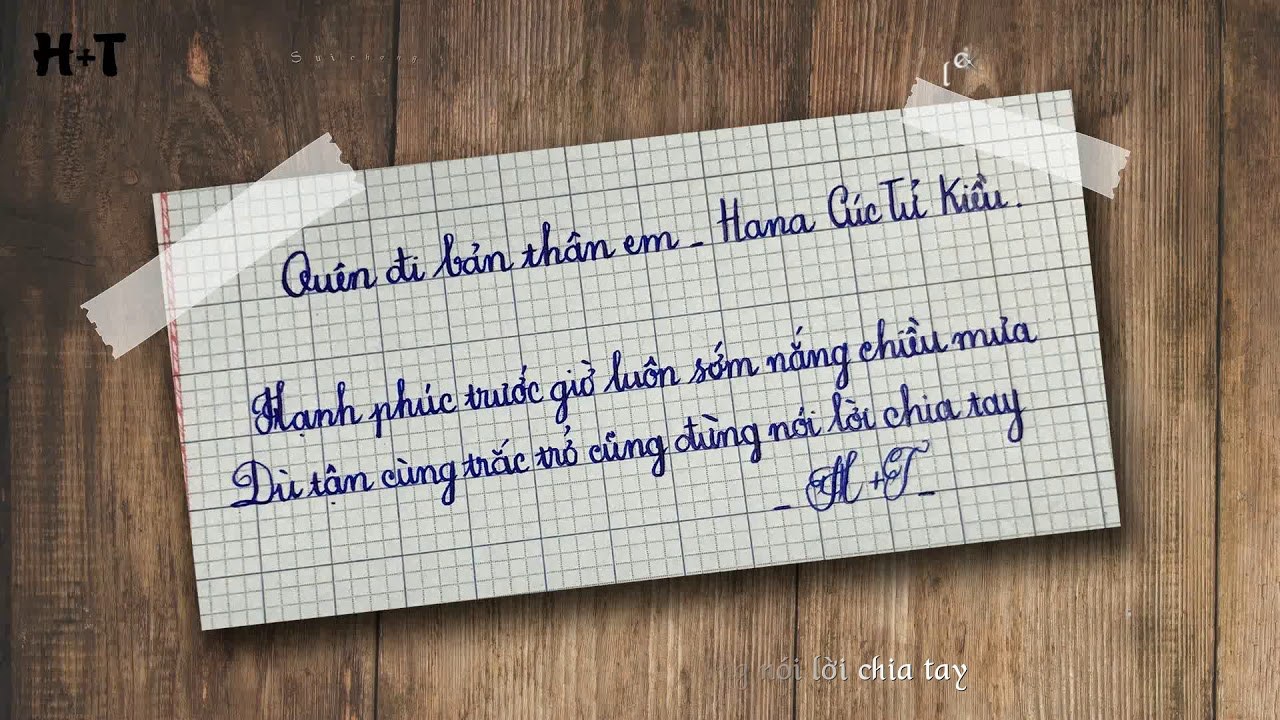 H+T
Suicheng
Quên đi bản thân em - Hana Cúc Tủ Kiều.
Hạnh phúc trước giờ luôn sớm nắng chiều mưa
Dù tận cùng trắc trở cũng đừng nói lời chia tay
- H+T -
nói lời chia tay